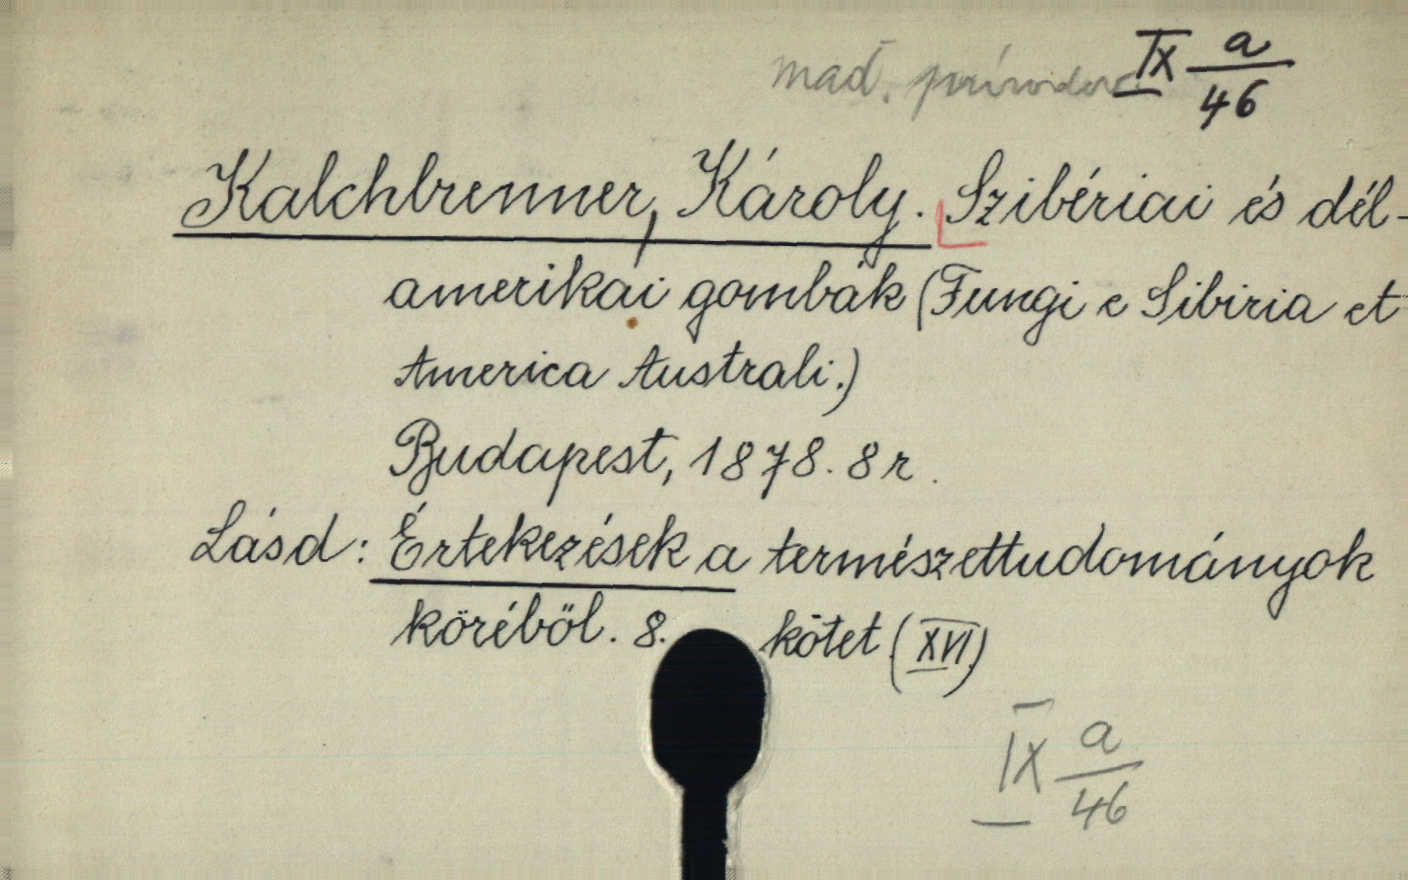 mad. prírodov. IX a/46
Kalchbrenner, Károly. Szibériai és dél-
amerikai gombák (Fungi e Sibiria et
America Australi.)
Budapest, 1878. 8 r.
Lásd: Értekezések a természettudományok
köréből. 8. kötet (XVI)
IX a/46